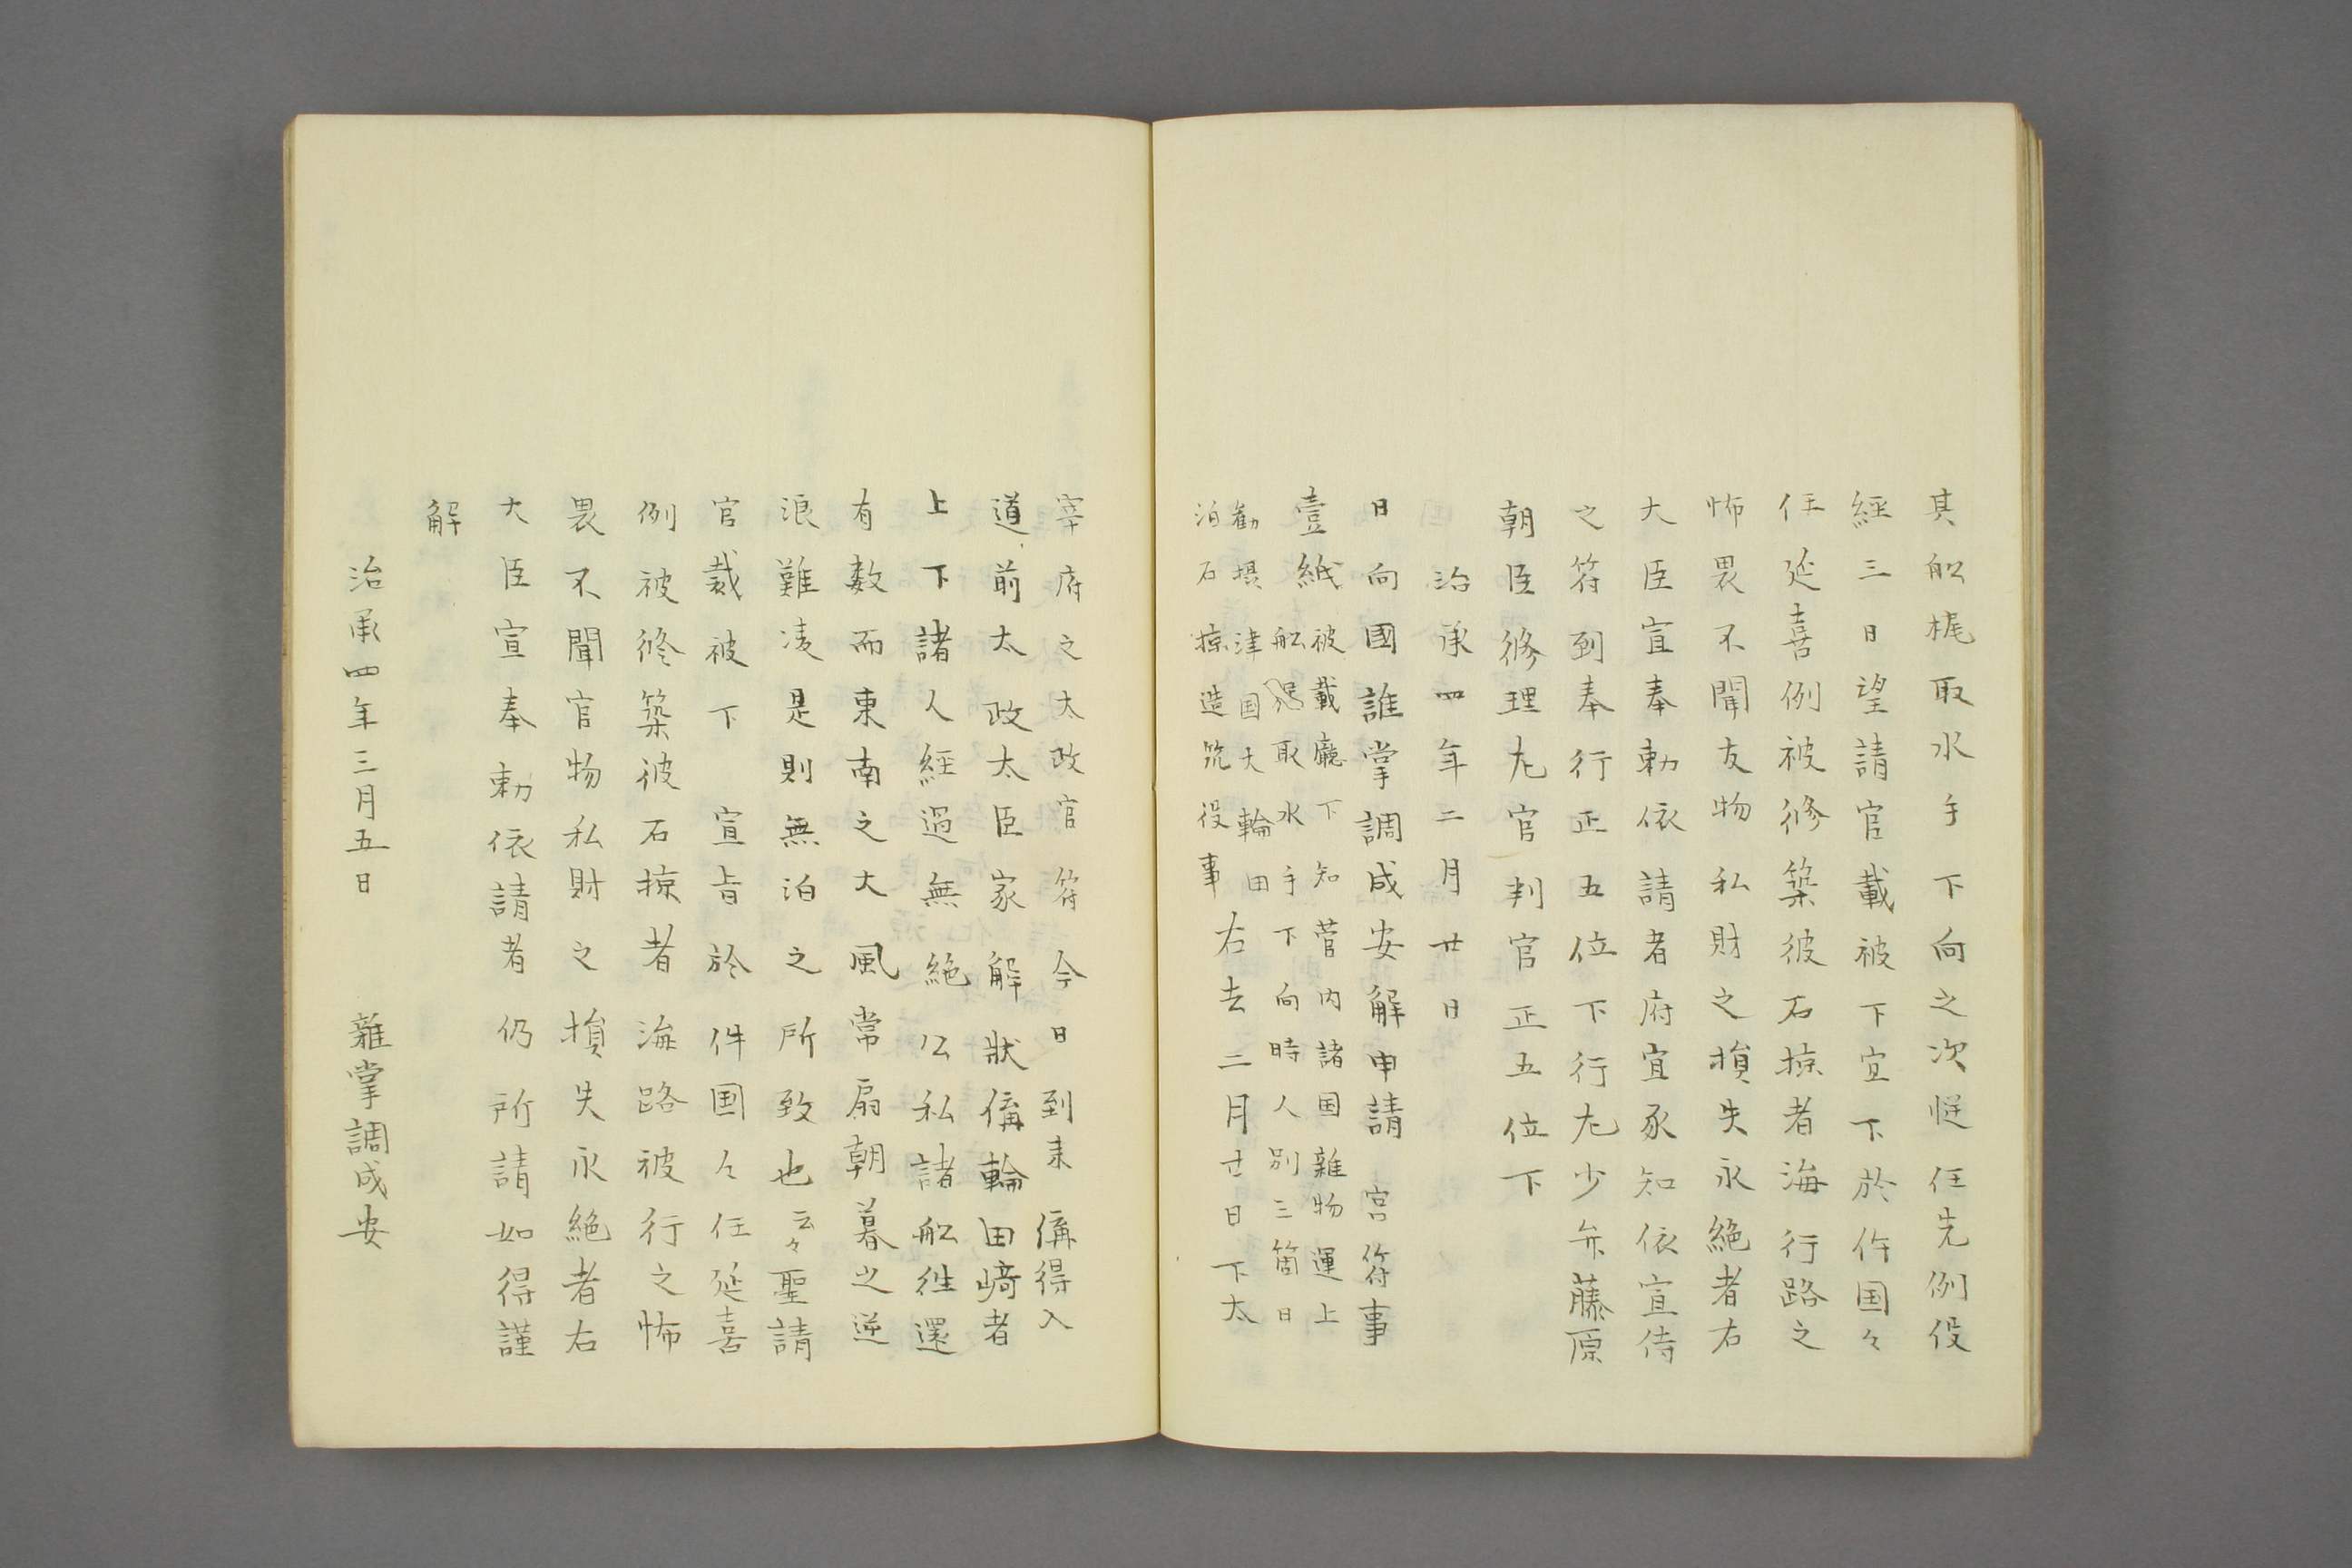 其舩梶取水手下向之次恠任先例役
經三日望請官載被下宣下於件国々
任延喜例被修築彼石掠者海行路之
怖畏不聞友物私財之損失永絶者右
大臣宣奉勅依請者府宜承知依宣侍
之符到奉行正五位下行左少弁藤原
朝臣修理左官判官正五位下
治承四年二月廿日
日向國誰掌調成安解申請 宮符事
壹紙被載廳下知菅内諸国雜物運上
舩 取水手下向時人別三箇日
勸摂津国大輪田
泊石掠造築役事右去二月廿日下太
宰府之太政官符今日到来偁得入
道前太政太臣家解狀偁輪田﨑者
上下諸人經過無絶公私諸舩往還
有數而東南之大風常扇朝暮之逆
浪難凌是則無泊之所致也云々聖請
官裁被下 宣旨於件国々任延喜
例被修築彼石掠者海路被行之怖
畏不聞官物私財之損失永絶者右
大臣宣奉勅依請者仍所請如得謹
解
治承四年三月五日 雜掌調成安